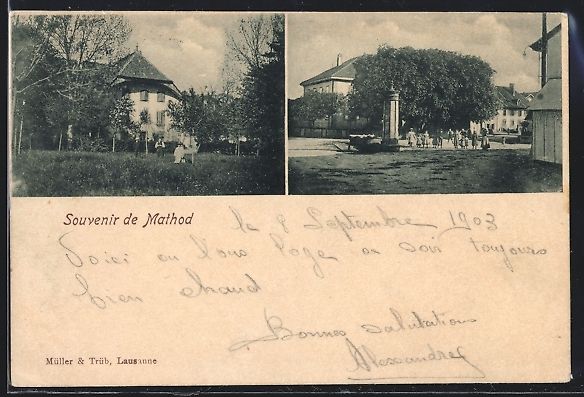 Souvenir de Mathod
le 8 Septembre 1903
Voici ou l'on loge ce soir toujours
bien chaud
Bonnes salutations
Alexandre
Müller & Trüb, Lausanne